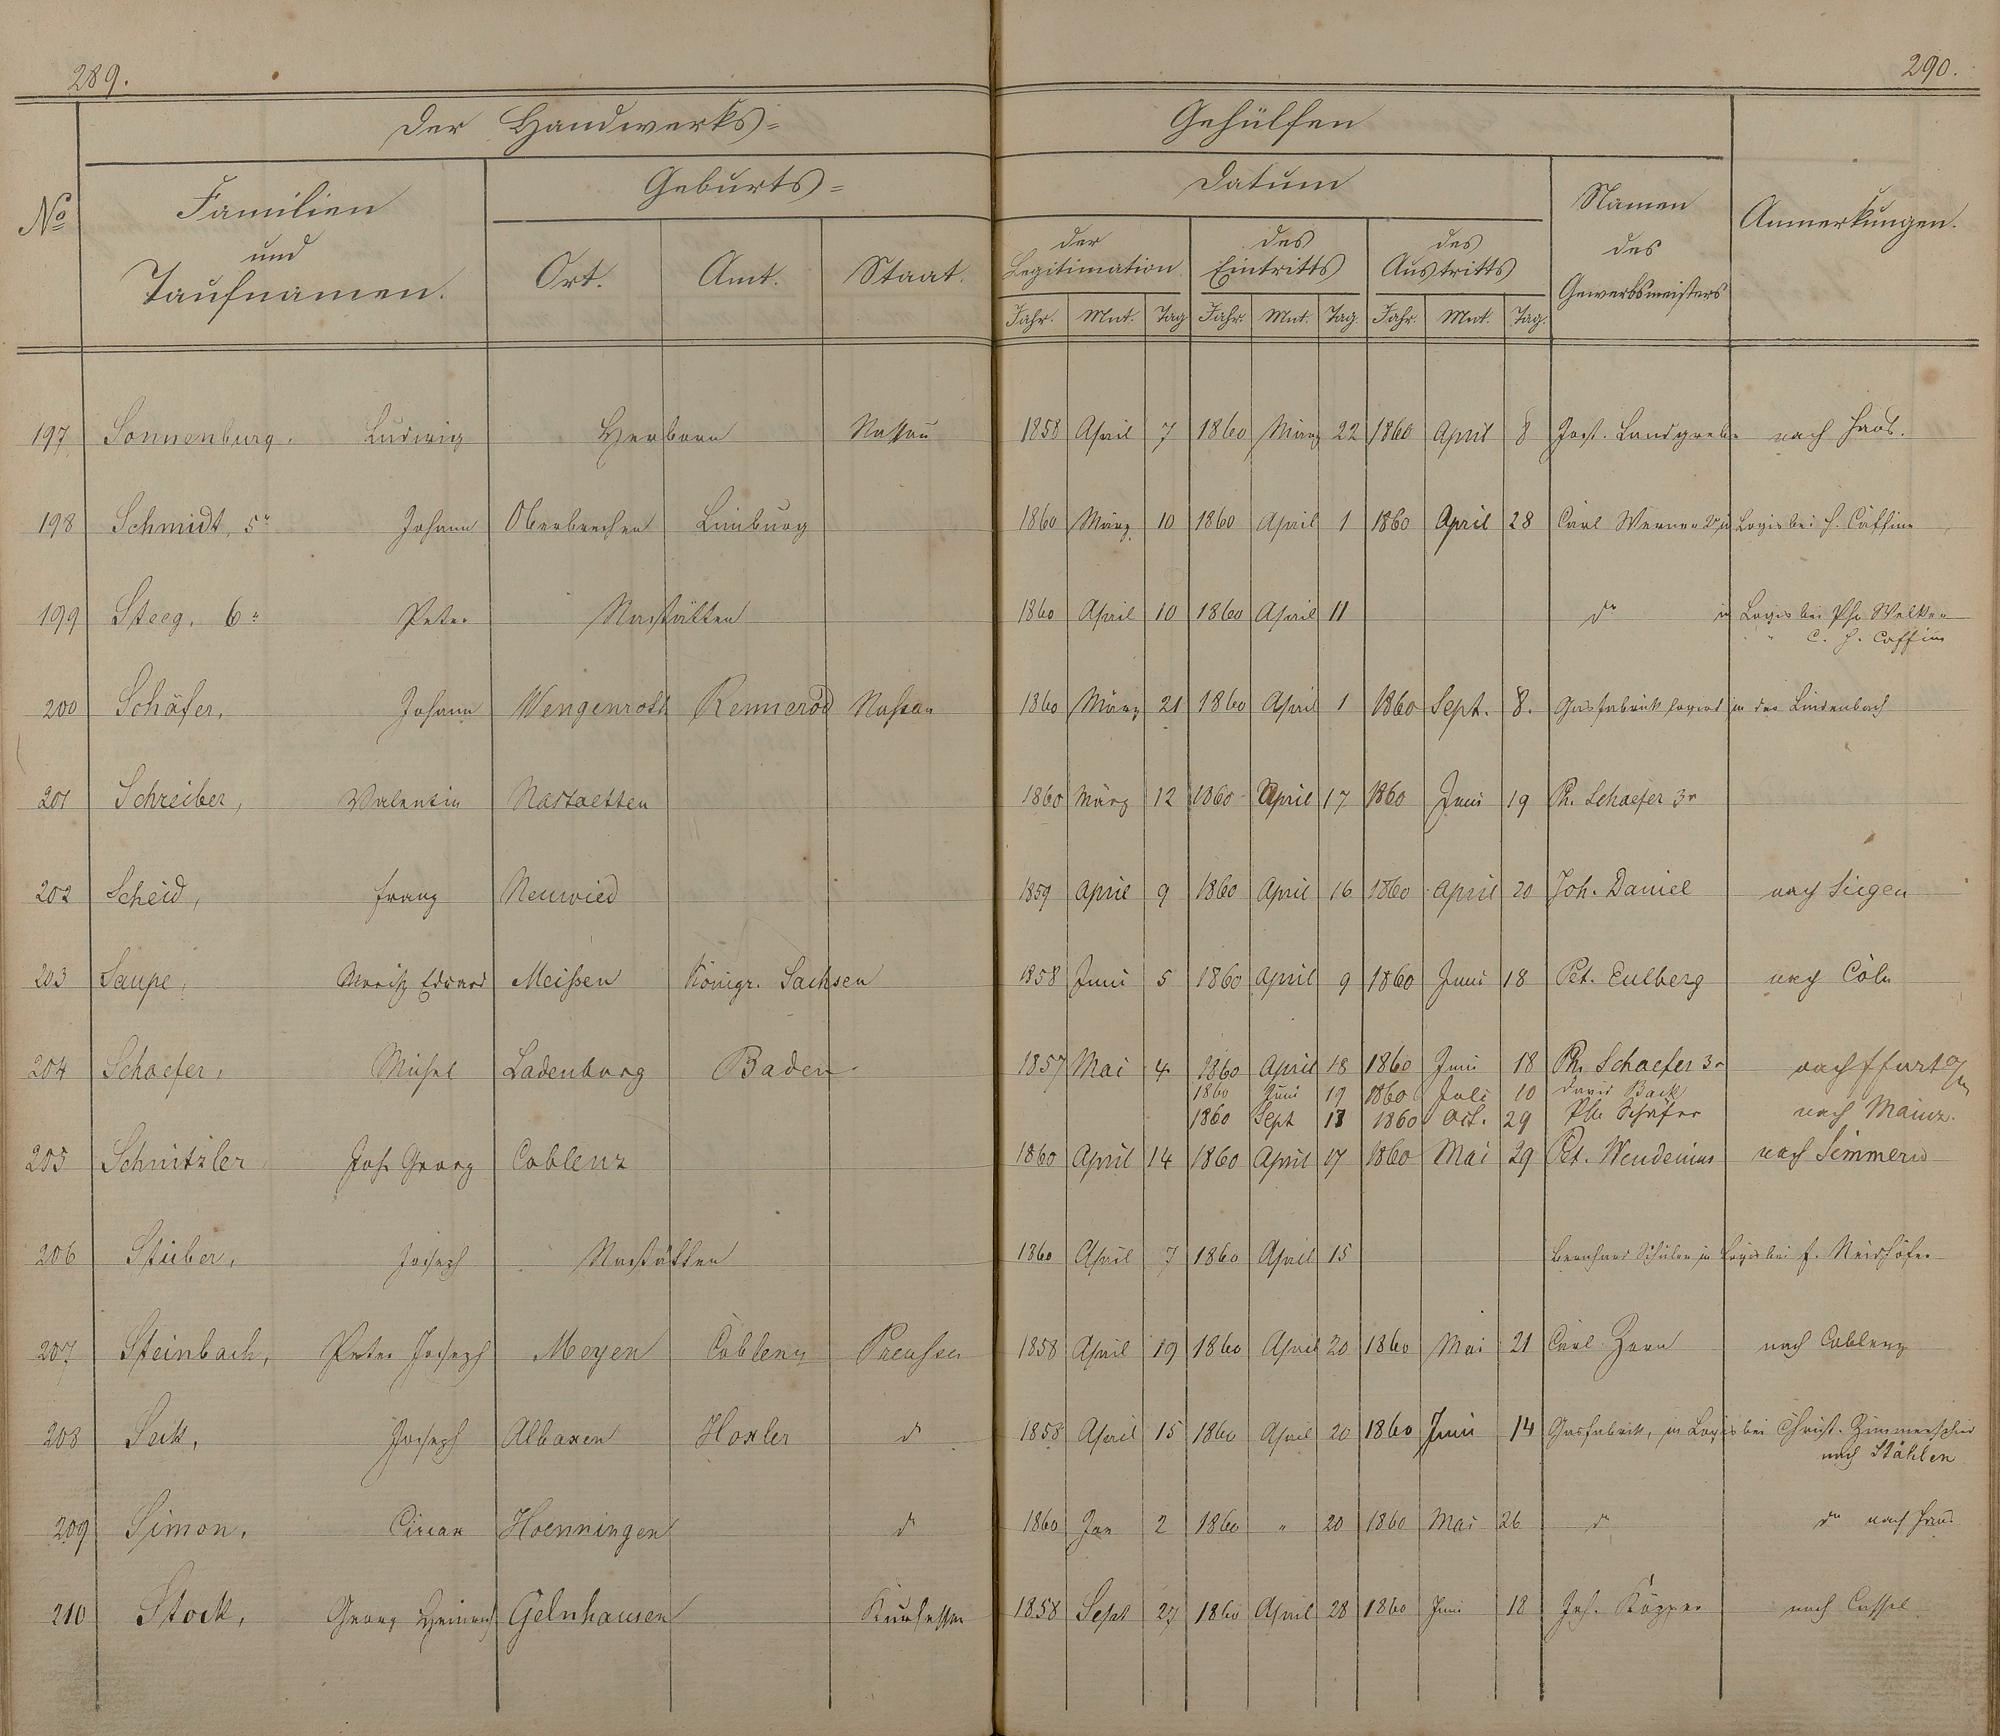 289.
290.
Der Handwerks= Gehülfen
No
Familien und Taufnamen.
Geburts=
Ort. Amt. Staat.
Datum
der Legitimation des Eintritts des Austritts
Jahr. Mnt. Tag Jahr. Mnt. Tag. Jahr. Mnt. Tag.
Namen des Gewerbsmeisters
Anmerkungen.
197 Sonnenburg. Ludwig Herborn Nassau 1858 April 7 1860 März 22 1860 April 8 Jost. Landgrebe nach Haus.
198 Schmidt, 5r Johann Oberbrechen Limburg 1860 März 10 1860 April 1 1860 April 28 Carl Werner in Logis bei H. Caffine
199 Steeg. 6r Peter Nastätten 1860 April 10 1860 April 11 do in Logis bei Ph. Welker
" C. H. Caffine
200 Schäfer, Johann Wengenroth Rennerod Nassau 1860 März 21 1860 April 1 1860 Sept. 8. Gasfabrik logiert in der Lindenbach
201 Schreiber, Valentin Nastaetten 1860 März 12 1860 April 17 1860 Juni 19 Ph. Schaefer 3r
202 Scheid, Franz Neuwied 1859 April 9 1860 April 16 1860 April 20 Joh. Daniel nach Siegen
203 Saupe, Moritz Eduard Meißen Königr. Sachsen 1858 Juni 5 1860 April 9 1860 Juni 18 Pet. Eulberg nach Cöln
204 Schaefer, Michel Ladenburg Baden 1857 Mai 4 1860 April 18 1860 Juni 18 Ph. Schaefer 3r nach Ffurt a/m
1860 Juni 19 1860 Juli 10 David Back
1860 Sept 13 1860 Oct. 29 Ph. Schäfer nach Mainz.
205 Schnitzler Joh. Georg Coblenz 1860 April 14 1860 April 17 1860 Mai 29 Pet. Wendenius nach Simmern
206 Stüber, Joseph Nastätten 1860 April 7 1860 April 15 Bernhard Schüler in Logis bei F. Neidhöfer
207 Steinbach, Peter Joseph Meyen Coblenz Preußen 1858 April 19 1860 April 20 1860 Mai 21 Carl Zorn nach Coblenz
208 Seck, Joseph Albaxen Hoxler do 1858 April 15 1860 April 20 1860 Juni 14 Gasfabrik, in Logis bei Christ. Zimmerschied
nach Stahlen
209 Simon, Hoenningen do 1860 Jan 2 1860 " 20 1860 Mai 26 do do nach Haus
210 Stock, Georg Heinrich Gelnhausen Kurhessen 1858 Sept 27 1860 April 28 1860 Juni 18 Joh. Küpper nach Cassel